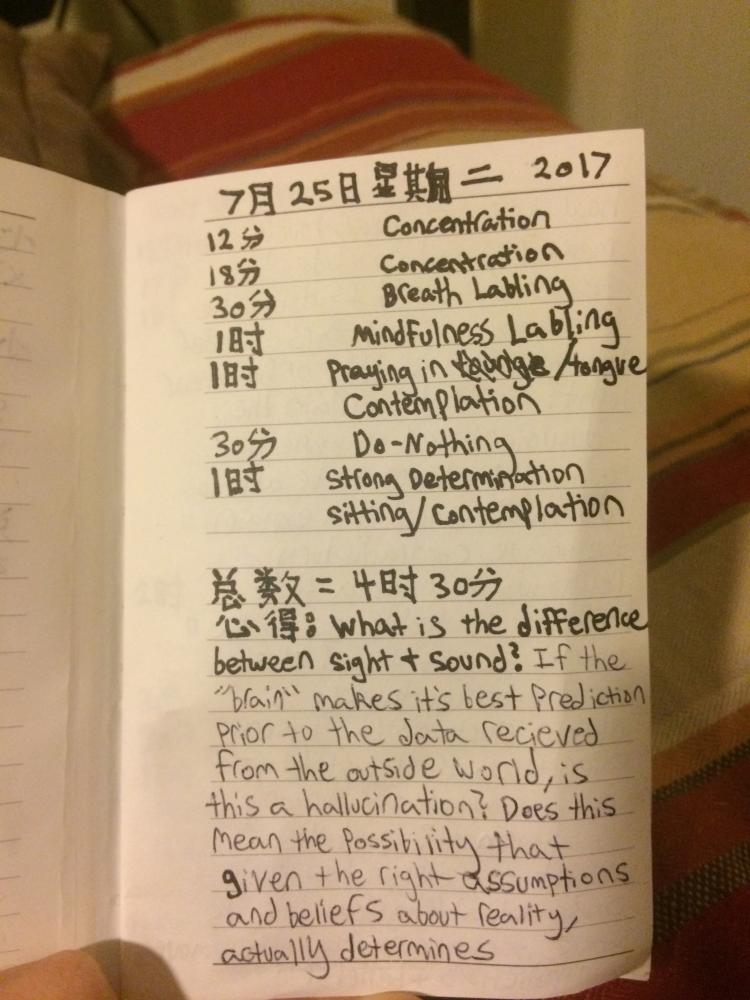 7月 25日 星期二 2017
12分 Concentration
18分 Concentration
30分 Breath Labling
1时 Mindfulness Labling
1时 Praying in /tongue
Contemplation
30分 Do-Nothing
1时 Strong Determination
sitting/contemplation
总数 = 4时 30分
心得: What is the difference
between sight + sound? If the
"brain" makes it's best Prediction
prior to the data recieved
from the outside world, is
this a hallucination? Does this
mean the Possibility that
given the right assumptions
and beliefs about reality,
actually determines